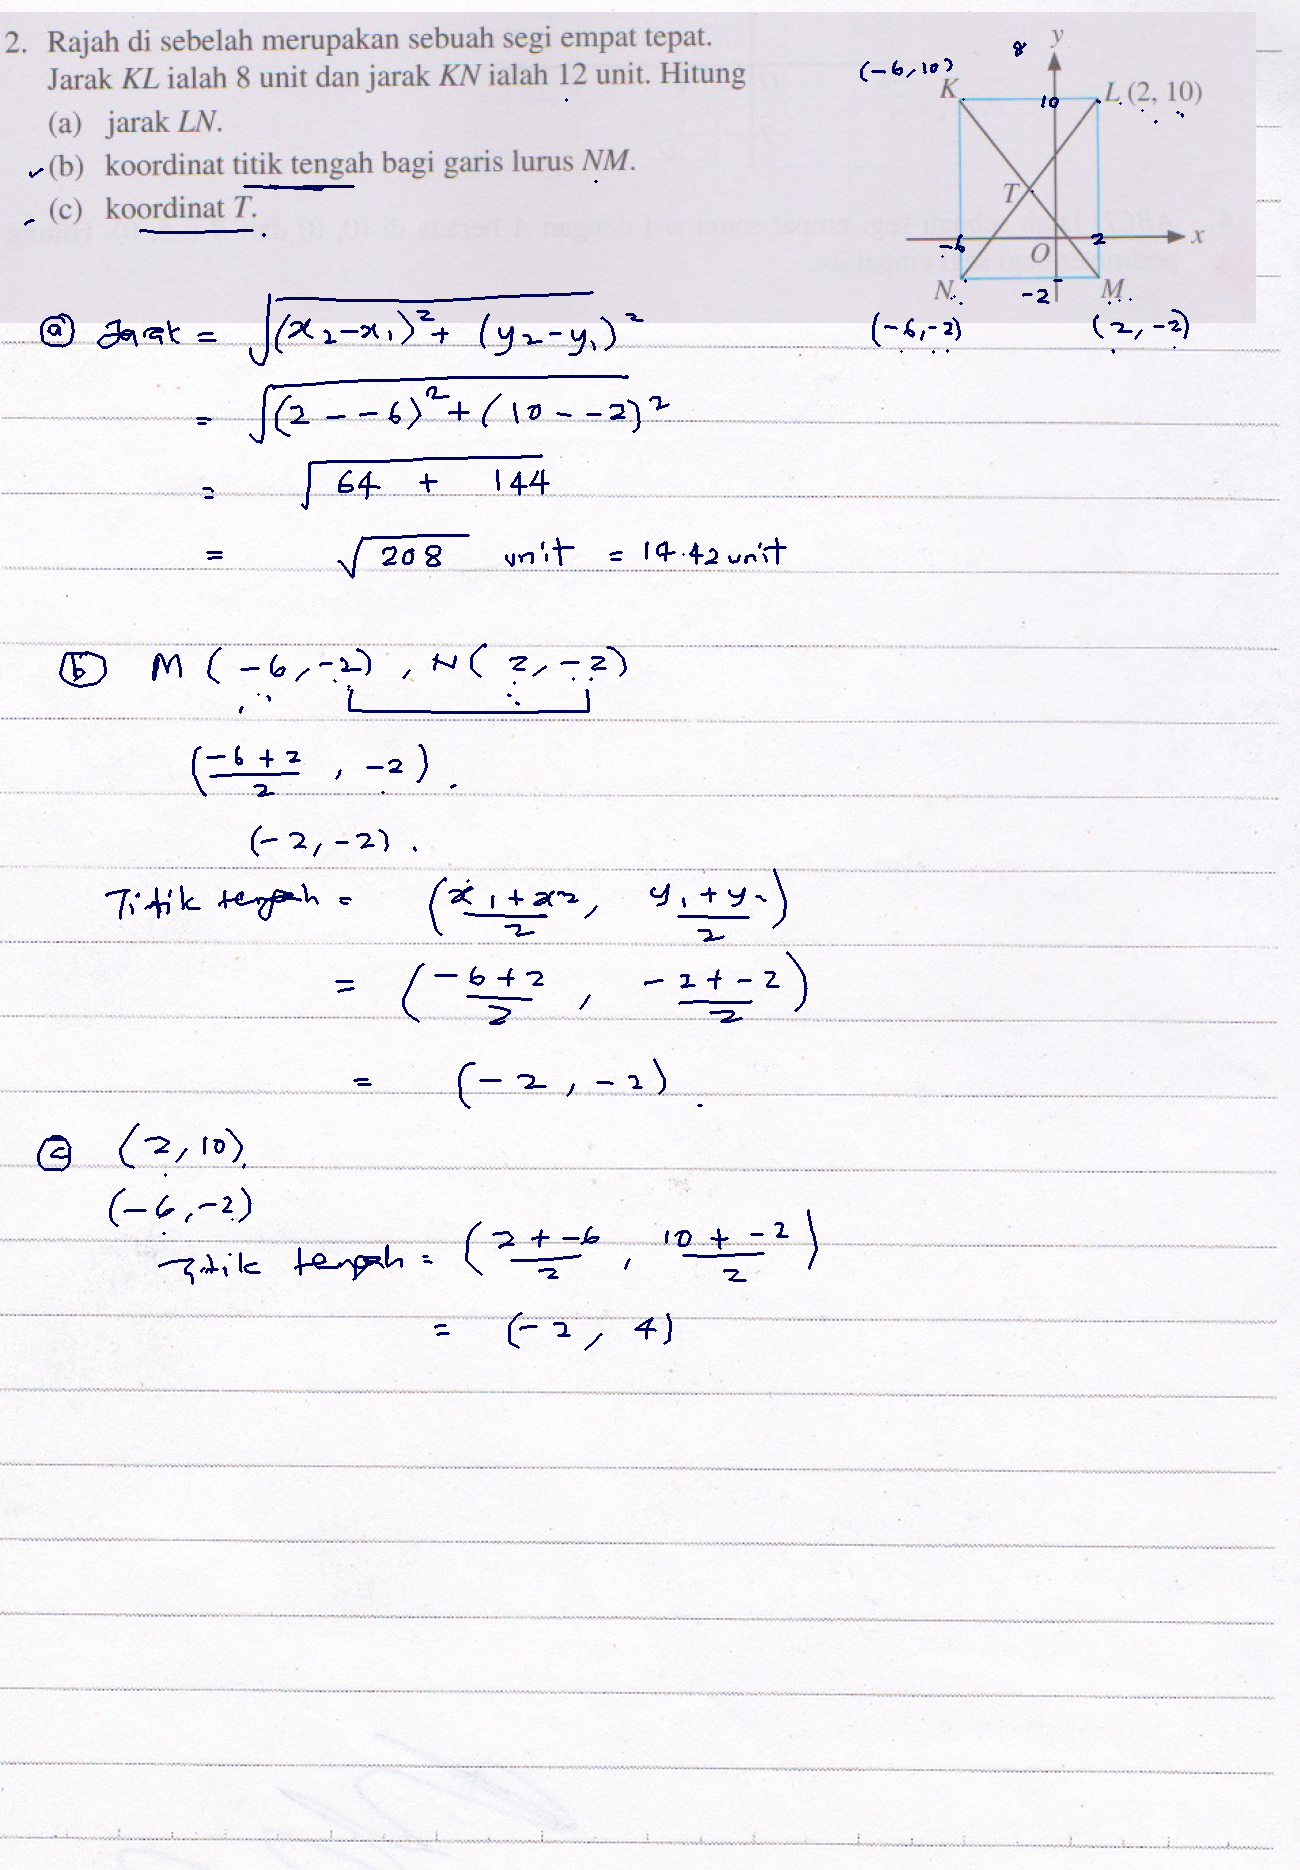 2. Rajah di sebelah merupakan sebuah segi empat tepat.
Jarak KL ialah 8 unit dan jarak KN ialah 12 unit. Hitung
(a) jarak LN.
(b) koordinat titik tengah bagi garis lurus NM.
(c) koordinat T.
8 y
(-6,10)
K 10 L (2, 10)
T
-6 O 2 x
N -2 M
(-6,-2) (2,-2)
(a) Jarak = √(x₂-x₁)² + (y₂-y₁)²
= √(2--6)² + (10--2)²
= √64 + 144
= √208 unit = 14.42 unit
(b) M (-6,-2), N (2,-2)
(-6+2/2, -2).
(-2,-2).
Titik tengah = (x₁+x₂/2, y₁+y₂/2)
= (-6+2/2, -2+-2/2)
= (-2,-2).
(c) (2,10)
(-6,-2)
Titik tengah = (2+-6/2, 10+-2/2)
= (-2, 4)